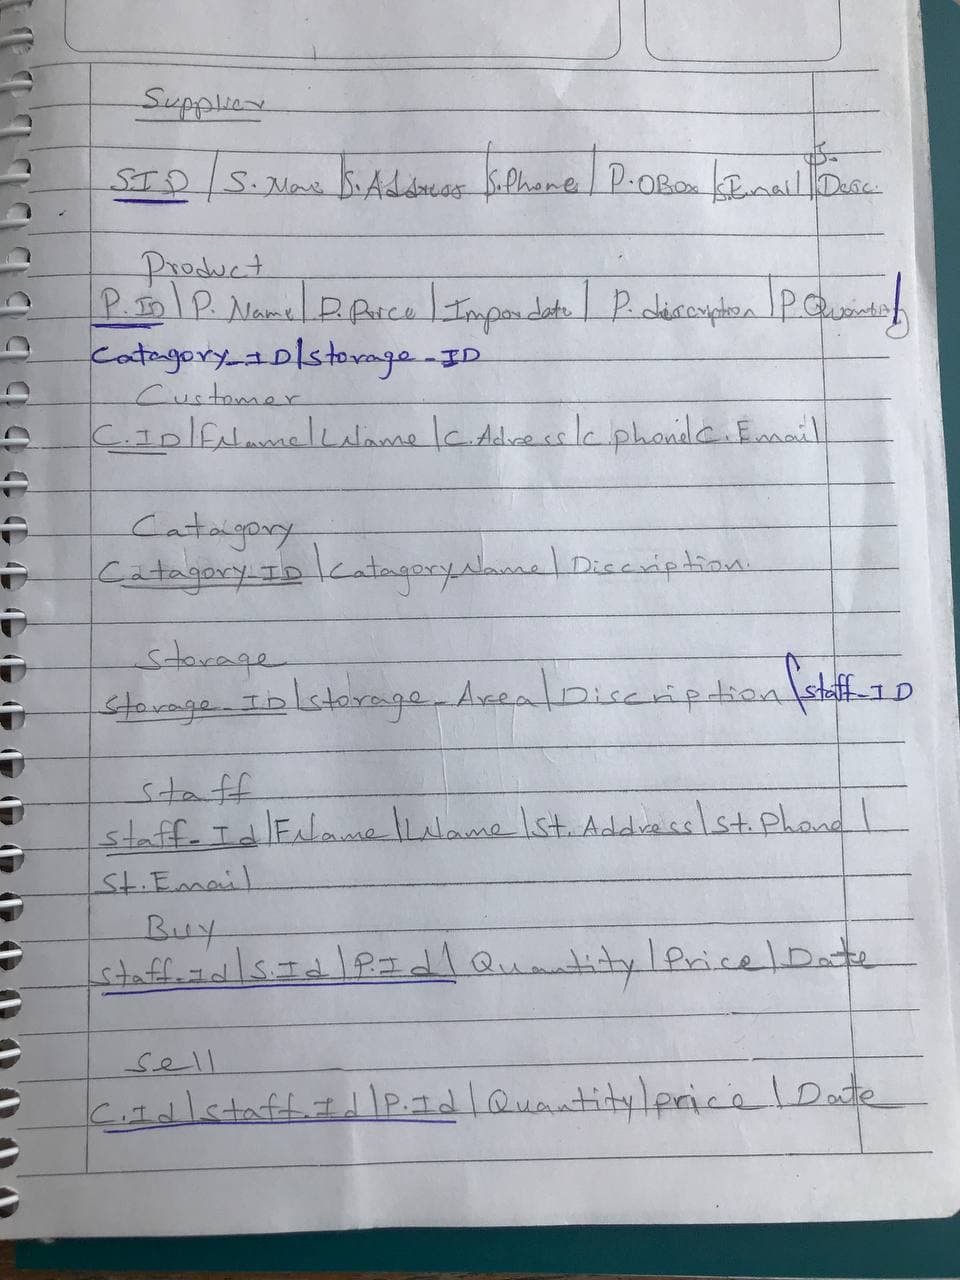 Supplier
SID | S. Name | S. Address | S. Phone | P. OBox | S. Email | S. Desc.
Product
P. ID | P. Name | P. Price | Impor date | P. discription | P. Quantity |
Catagory_ID | Storage_ID
Customer
C. ID | FName | LName | C. Adress | C phone | C. Email |
Catagory
Catagory_ID | Catagory_Name | Discription.
Storage
Storage_ID | Storage_Area | Discription | Staff_ID
Staff
Staff_Id | FName | LName | St. Address | St. Phone |
St. Email |
Buy
Staff_Id | S. Id | P. Id | Quantity | Price | Date
Sell
C. Id | Staff_Id | P. Id | Quantity | price | Date